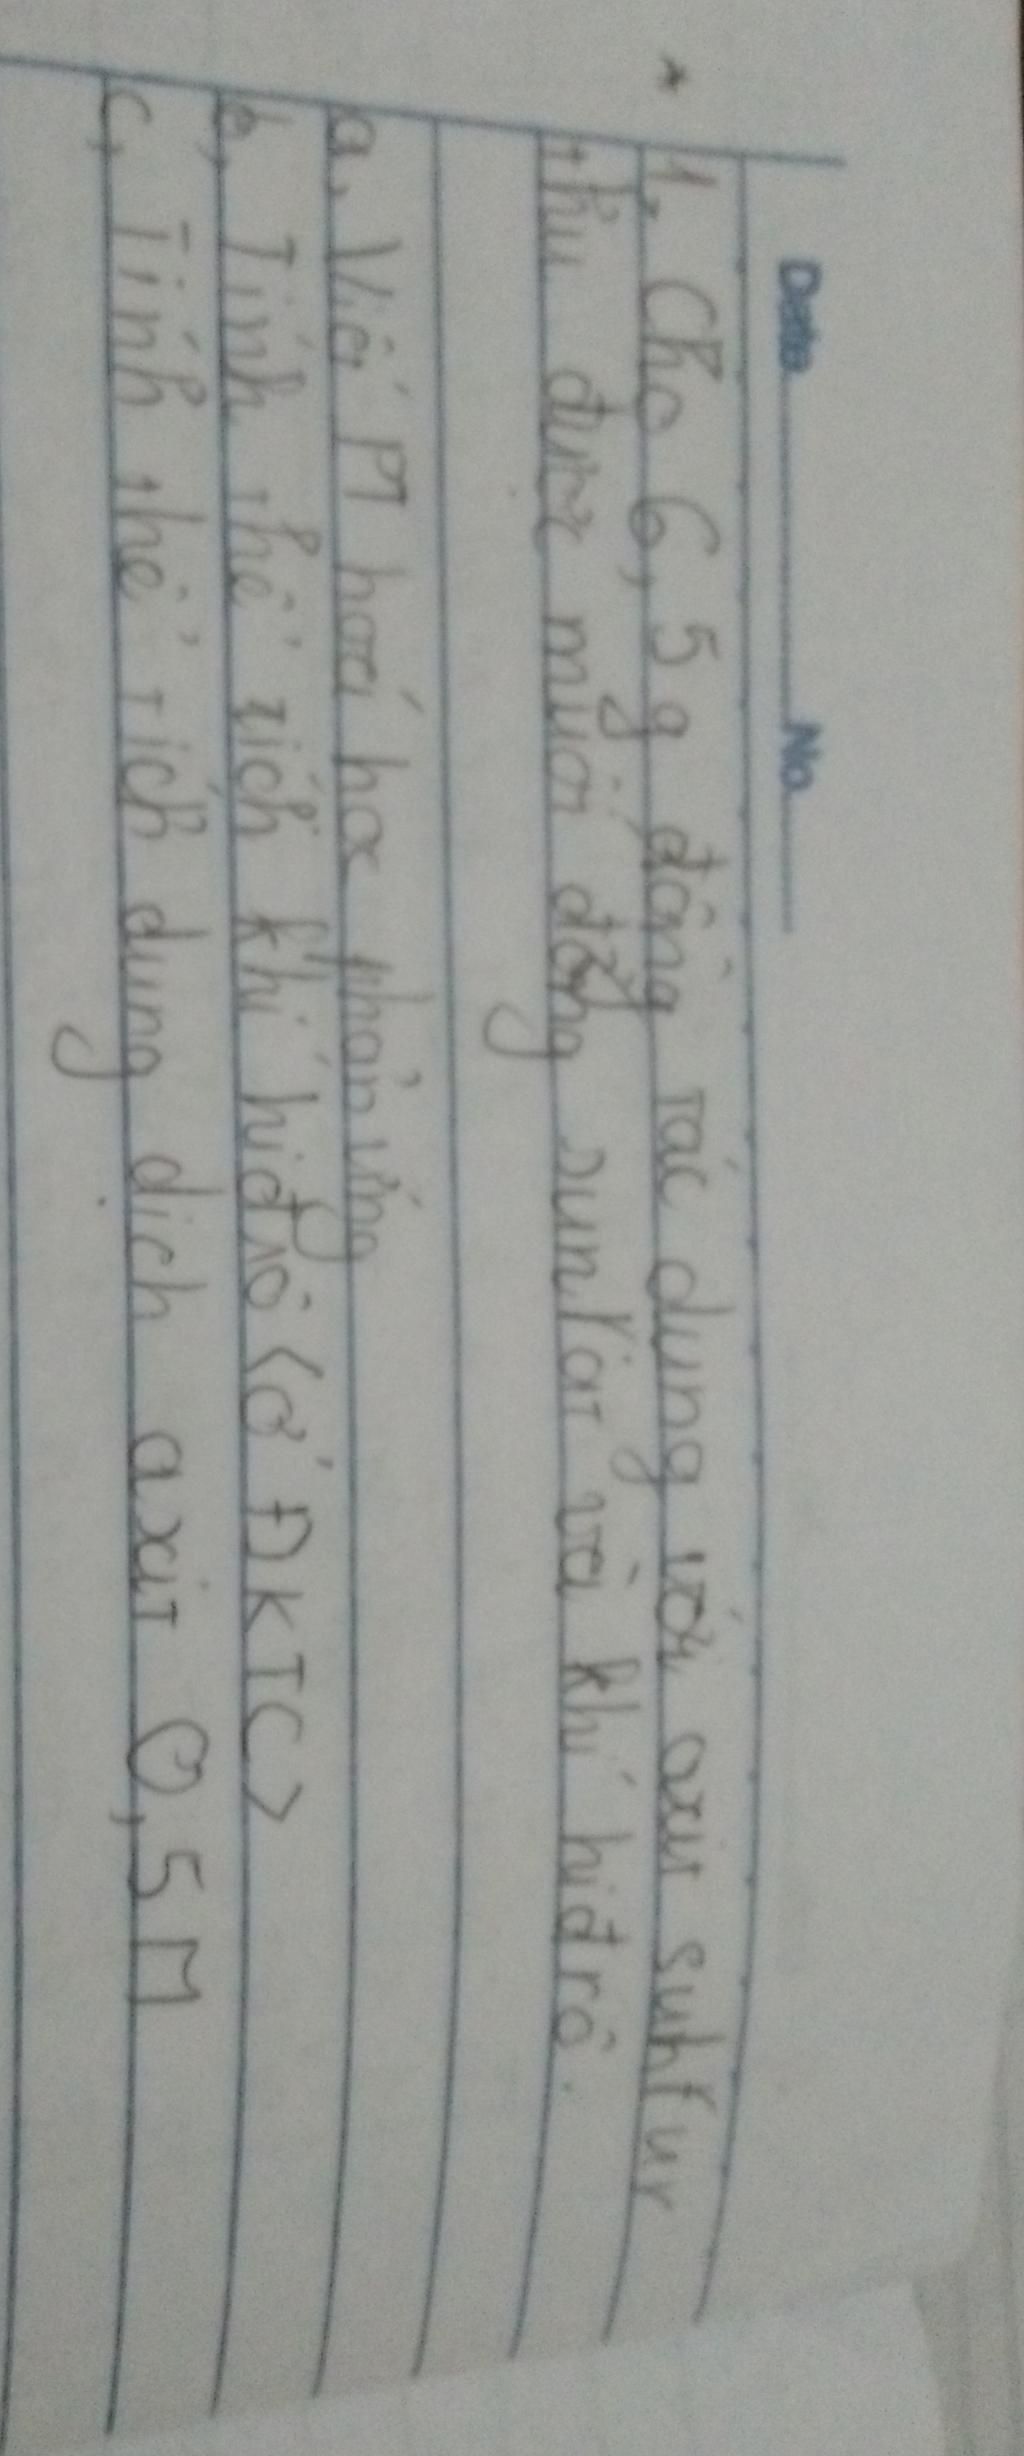 Date No.
1, Cho 6,5 g đồng tác dụng với axit suhfur
thu được muối đồng sunfat và khí hiđrô.
a, Viết PT hoá học phản ứng
b, Tính thể tích khí hiđrô (ở ĐKTC)
c, Tính thể tích dung dịch axit 0,5M